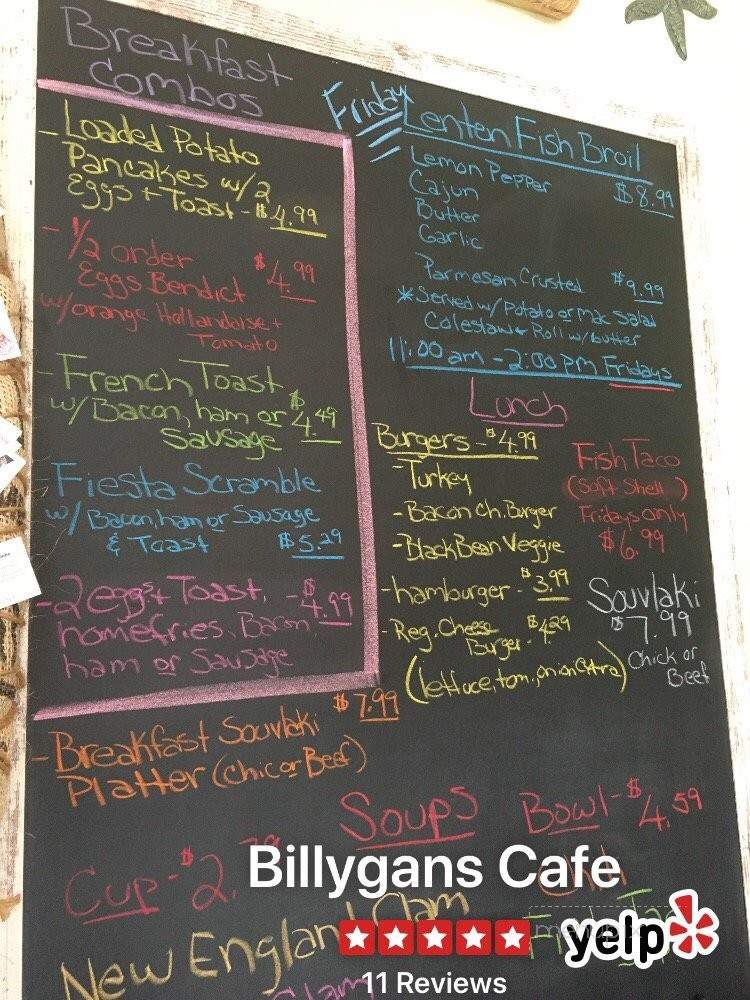 Breakfast
Combos
- Loaded Potato
Pancakes w/2
Eggs + Toast - $4.99
- 1/2 order
Eggs Bendict $4.99
w/orange Hollandaise +
Tomato
- French Toast
w/Bacon, ham or $4.49
Sausage
- Fiesta Scramble
w/Bacon, ham or Sausage
& Toast $5.29
- 2 eggs + Toast, - $4.99
homefries, Bacon,
ham or Sausage
- Breakfast Souvlaki $7.99
Platter (Chic or Beef)
Friday Lenten Fish Broil
Lemon Pepper $8.99
Cajun
Butter
Garlic
Parmesan Crusted $9.99
*Served w/ Potato or Mac Salad
Coleslaw + Roll w/butter
11:00 am - 2:00 pm Fridays
Lunch
Burgers - $4.99
- Turkey
- Bacon Ch. Burger
- Black Bean Veggie
- hamburger - $3.99
- Reg. Cheese Burger - $4.29
(lettuce, tom, onion extra)
Fish Taco
(Soft Shell)
Fridays only
$6.99
Souvlaki
$7.99
Chick or
Beef
Soups
Cup - $2.
Bowl - $4.59
New England Clam
Billygans Cafe
yelp
11 Reviews